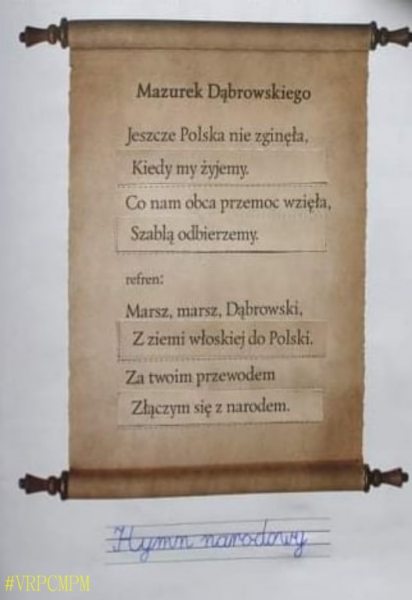 Mazurek Dąbrowskiego
Jeszcze Polska nie zginęła,
Kiedy my żyjemy.
Co nam obca przemoc wzięła,
Szablą odbierzemy.
refren:
Marsz, marsz, Dąbrowski,
Z ziemi włoskiej do Polski.
Za twoim przewodem
Złączym się z narodem.
Hymn narodowy
#VRPCMPM